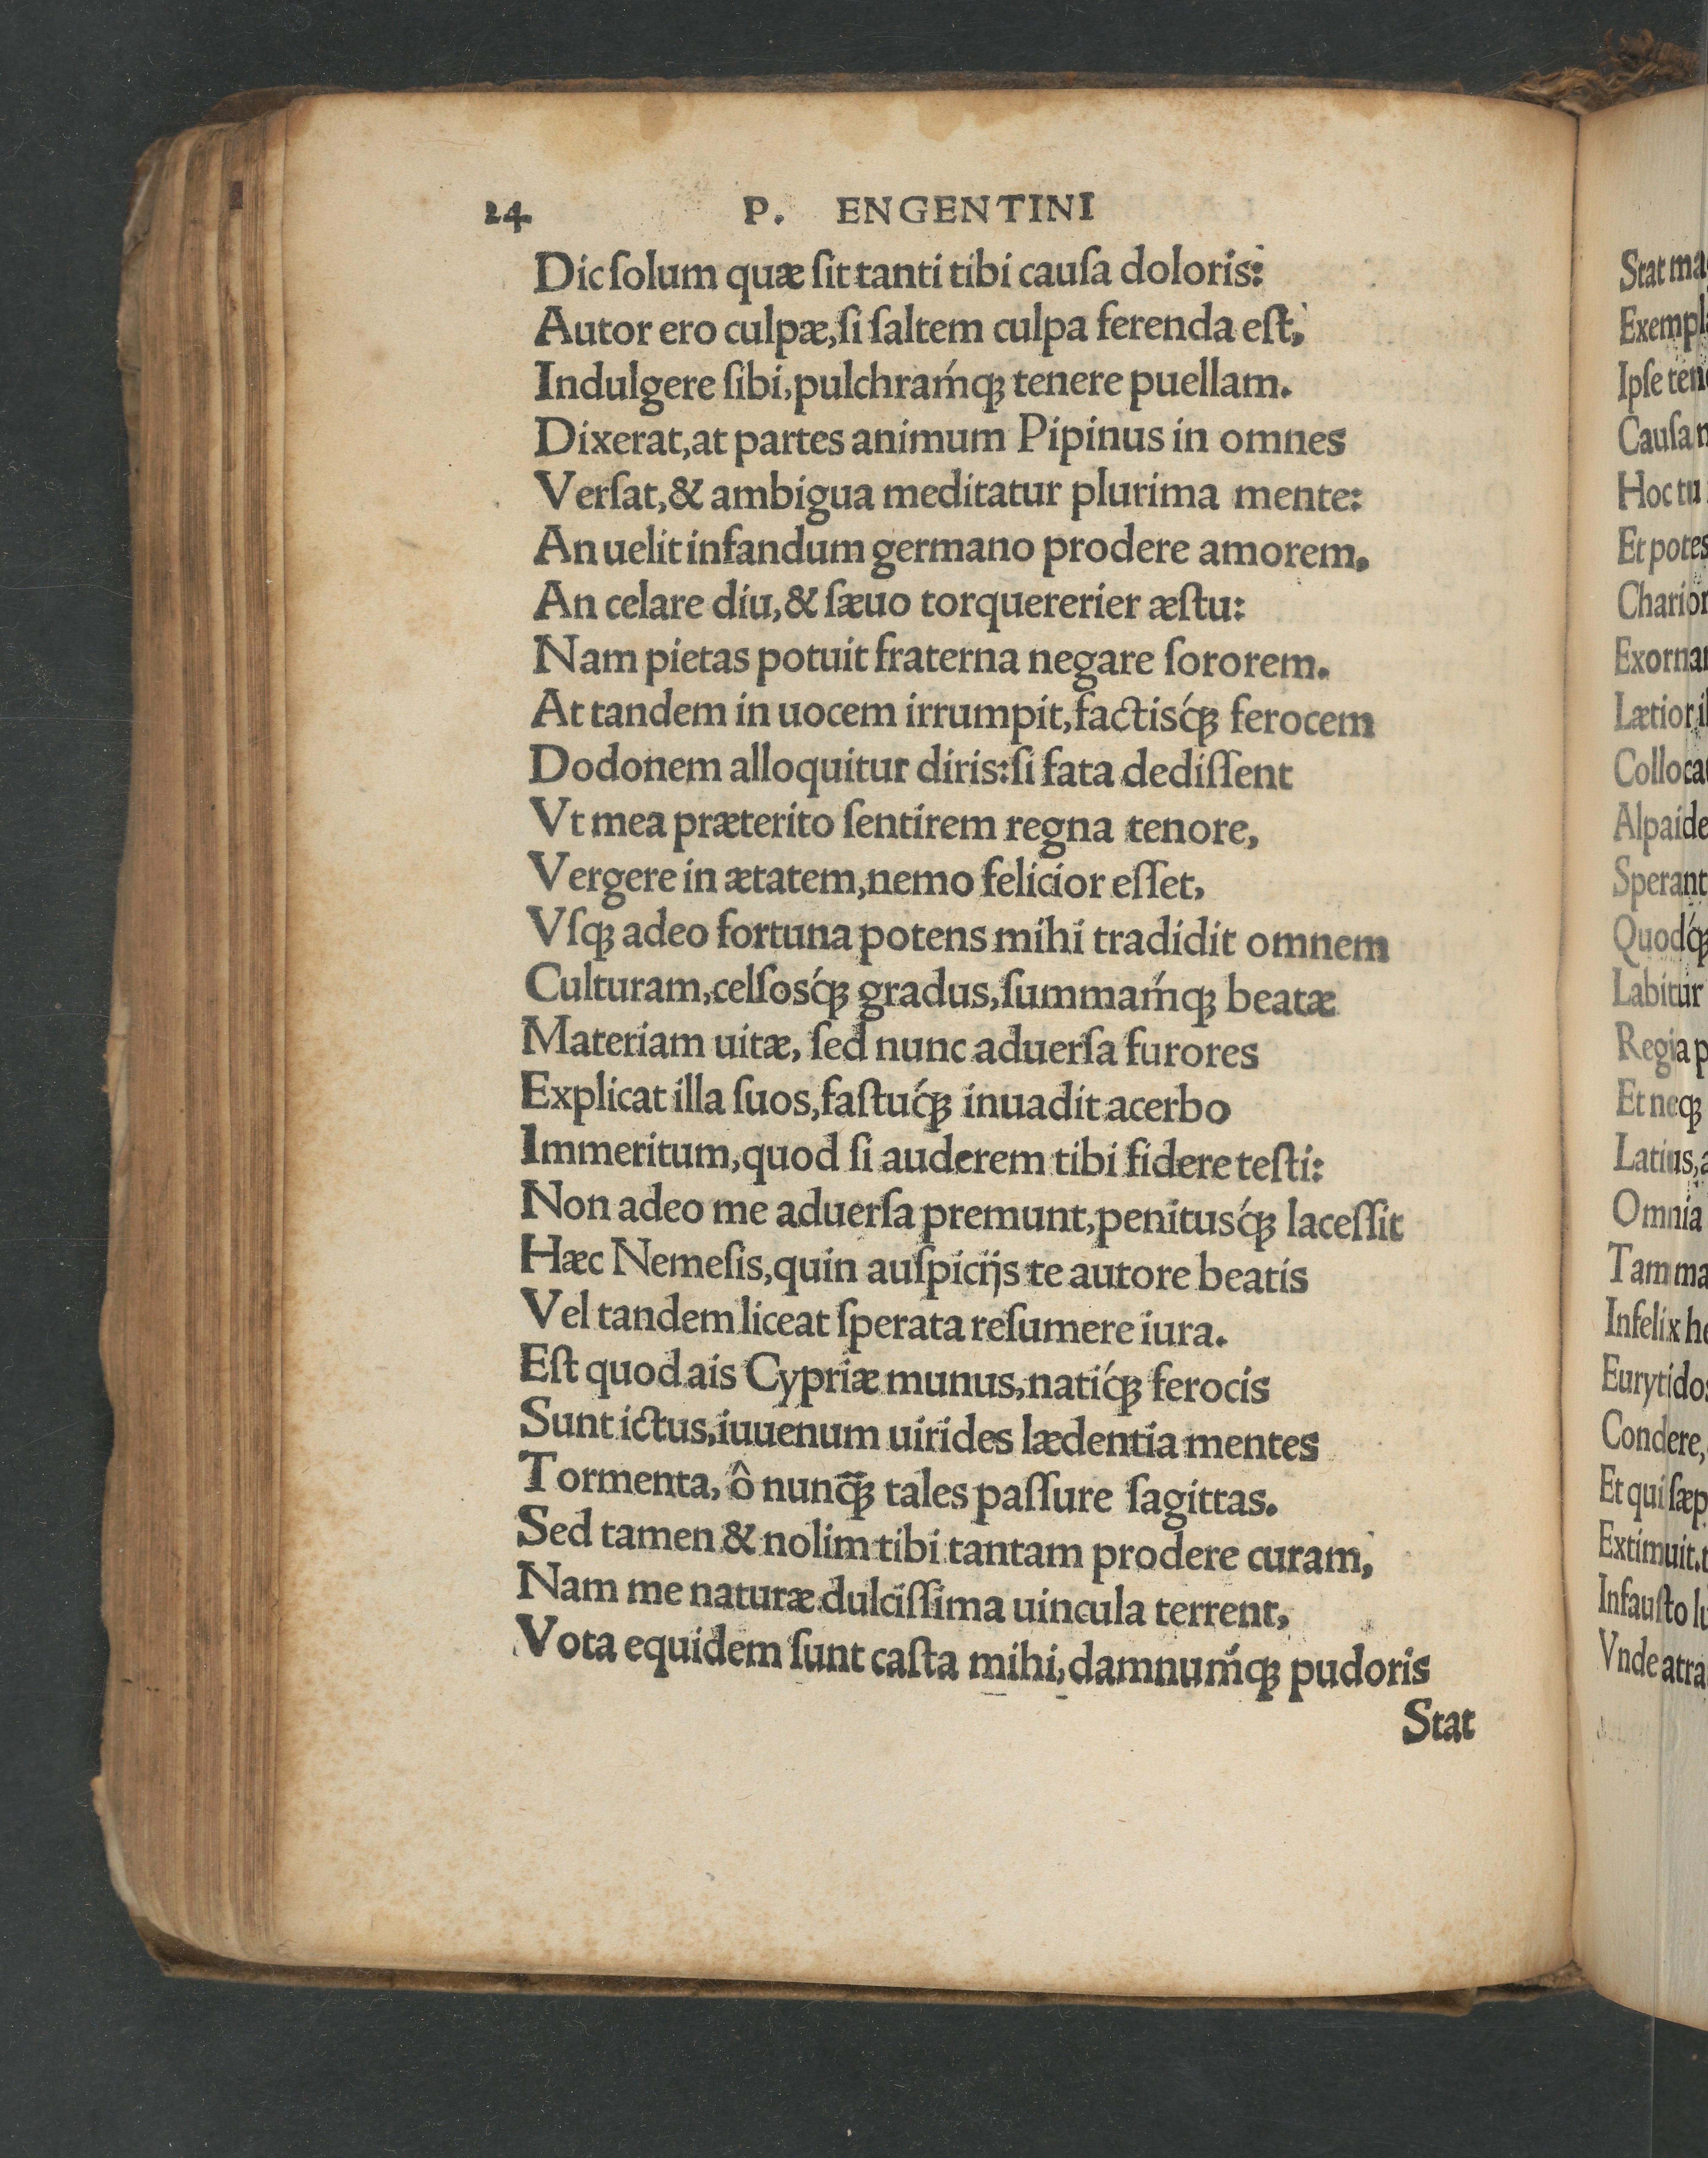 24 P. ENGENTINI
Dic ſolum quæ ſit tanti tibi cauſa doloris:
Autor ero culpæ, ſi ſaltem culpa ferenda eſt,
Indulgere ſibi, pulchramq́ꝫ tenere puellam.
Dixerat, at partes animum Pipinus in omnes
Verſat, & ambigua meditatur plurima mente:
An uelit infandum germano prodere amorem,
An celare diu, & ſæuo torquererier æſtu:
Nam pietas potuit fraterna negare ſororem.
At tandem in uocem irrumpit, factisq́ꝫ ferocem
Dodonem alloquitur diris: ſi fata dediſſent
Vt mea præterito ſentirem regna tenore,
Vergere in ætatem, nemo felicior eſſet,
Vſqꝫ adeo fortuna potens mihi tradidit omnem
Culturam, celſosq́ꝫ gradus, ſummamq́ꝫ beatæ
Materiam uitæ, ſed nunc aduerſa furores
Explicat illa ſuos, faſtuq́ꝫ inuadit acerbo
Immeritum, quod ſi auderem tibi fidere teſti:
Non adeo me aduerſa premunt, penitusq́ꝫ laceſſit
Hæc Nemeſis, quin auſpicijs te autore beatis
Vel tandem liceat ſperata reſumere iura.
Eſt quod ais Cypriæ munus, natiq́ꝫ ferocis
Sunt ictus, iuuenum uirides lædentia mentes
Tormenta, ô nunq̄ꝫ tales paſſure ſagittas.
Sed tamen & nolim tibi tantam prodere curam,
Nam me naturæ dulciſſima uincula terrent,
Vota equidem ſunt caſta mihi, damnumq́ꝫ pudoris
Stat
Stat
Exempl
Ipſe
Cauſa
Hoc tu
Et
Lætior
Alpaide
Sperant
Quodq́ꝫ
Labitur
Regia
Et neqꝫ
Latius,
Omnia
Tam
Infelix
Condere,
Et qui
Extimuit.
Infauſto
Vnde atra